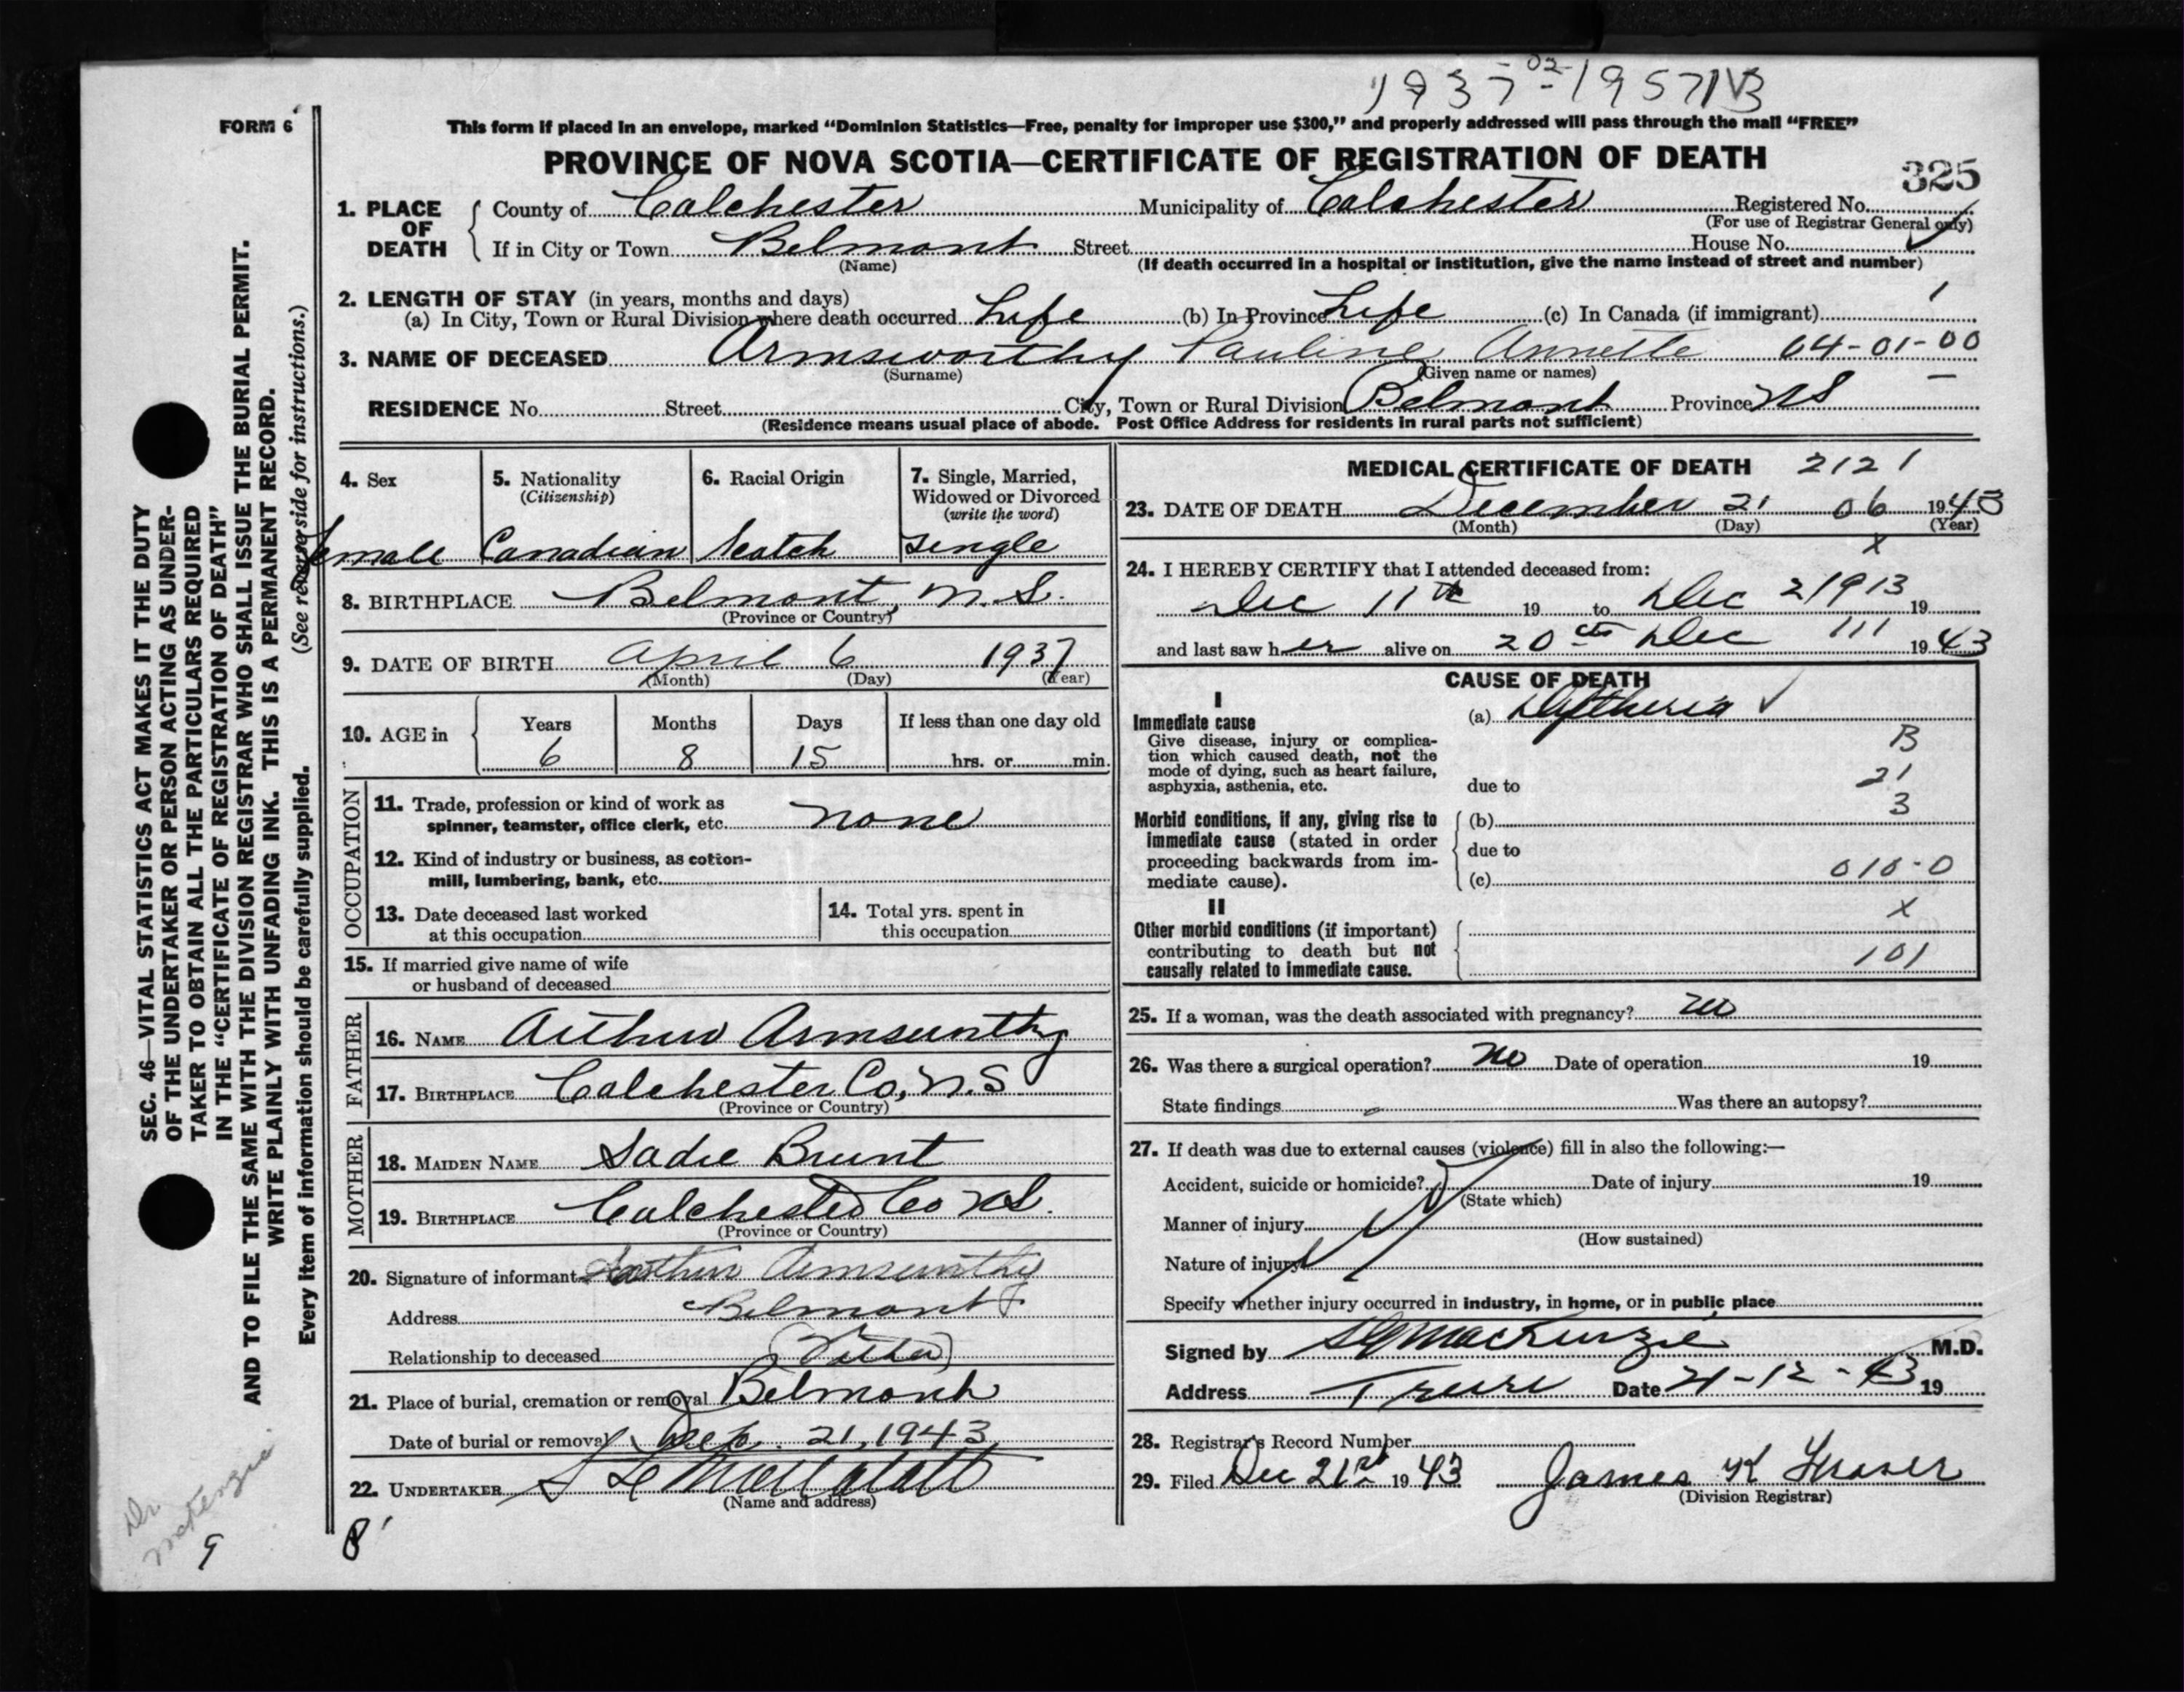 1937-02-195713
FORM 6
This form if placed in an envelope, marked “Dominion Statistics—Free, penalty for improper use $300,” and properly addressed will pass through the mail “FREE”
PROVINCE OF NOVA SCOTIA—CERTIFICATE OF REGISTRATION OF DEATH
325
1. PLACE OF DEATH
County of Colchester Municipality of Colchester Registered No.
(For use of Registrar General only)
If in City or Town Belmont Street House No.
(Name) (If death occurred in a hospital or institution, give the name instead of street and number)
2. LENGTH OF STAY (in years, months and days)
(a) In City, Town or Rural Division where death occurred Life (b) In Province Life (c) In Canada (if immigrant)
3. NAME OF DECEASED Armsworthy Pauline Annette 64-01-00
(Surname) (Given name or names)
RESIDENCE No. Street City, Town or Rural Division Belmont Province NS
(Residence means usual place of abode. Post Office Address for residents in rural parts not sufficient)
4. Sex 5. Nationality 6. Racial Origin 7. Single, Married,
(Citizenship) Widowed or Divorced
(write the word)
Female Canadian Scotch Single
8. BIRTHPLACE Belmont, N.S.
(Province or Country)
9. DATE OF BIRTH April 6 1937
(Month) (Day) (Year)
10. AGE in Years Months Days If less than one day old
6 8 15 hrs. or min.
OCCUPATION
11. Trade, profession or kind of work as
spinner, teamster, office clerk, etc. none
12. Kind of industry or business, as cotton-
mill, lumbering, bank, etc.
13. Date deceased last worked
at this occupation
14. Total yrs. spent in
this occupation
15. If married give name of wife
or husband of deceased
FATHER
16. NAME Arthur Armsworthy
17. BIRTHPLACE Colchester Co, N.S
(Province or Country)
MOTHER
18. MAIDEN NAME Sadie Brunt
19. BIRTHPLACE Colchester Co NS.
(Province or Country)
20. Signature of informant Arthur Armsworthy
Address Belmont
Relationship to deceased (Father)
21. Place of burial, cremation or removal Belmont
Date of burial or removal Dec. 21, 1943
22. UNDERTAKER
(Name and address)
8
MEDICAL CERTIFICATE OF DEATH 2121
23. DATE OF DEATH December 21 06 1943
(Month) (Day) (Year)
x
24. I HEREBY CERTIFY that I attended deceased from:
Dec 11th 19 to Dec 21913 19
and last saw her alive on 20th Dec 111 1943
CAUSE OF DEATH
I
Immediate cause
Give disease, injury or complica-
tion which caused death, not the
mode of dying, such as heart failure,
asphyxia, asthenia, etc.
(a) Diptheria
B
21
3
due to
Morbid conditions, if any, giving rise to
immediate cause (stated in order
proceeding backwards from im-
mediate cause).
(b)
due to
(c) 010-0
x
II
Other morbid conditions (if important)
contributing to death but not
causally related to immediate cause.
101
25. If a woman, was the death associated with pregnancy? no
26. Was there a surgical operation? no Date of operation 19
State findings Was there an autopsy?
27. If death was due to external causes (violence) fill in also the following:—
Accident, suicide or homicide? Date of injury 19
(State which)
Manner of injury
(How sustained)
Nature of injury
Specify whether injury occurred in industry, in home, or in public place
Signed by MacKenzie M.D.
Address Truro Date 21-12-43 19
28. Registrar's Record Number
29. Filed Dec 21st 1943 James K Fraser
(Division Registrar)
SEC. 46—VITAL STATISTICS ACT MAKES IT THE DUTY
OF THE UNDERTAKER OR PERSON ACTING AS UNDER-
TAKER TO OBTAIN ALL THE PARTICULARS REQUIRED
IN THE “CERTIFICATE OF REGISTRATION OF DEATH”
AND TO FILE THE SAME WITH THE DIVISION REGISTRAR WHO SHALL ISSUE THE BURIAL PERMIT.
WRITE PLAINLY WITH UNFADING INK. THIS IS A PERMANENT RECORD.
Every item of information should be carefully supplied. (See reverse side for instructions.)
Dr
McKenzie
9